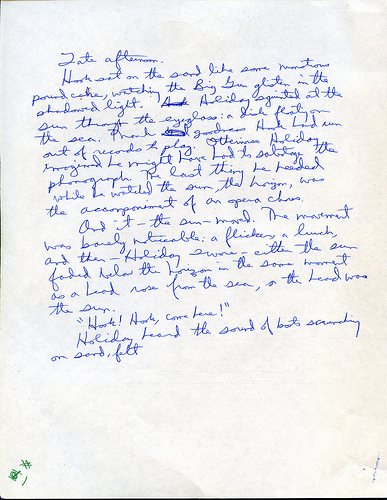 Late afternoon.
Hook sat on the sand like some monstrous
pound cake, watching the Big Gun glisten in the
shadowed light. Holiday squinted at the
sun through the eyeglass: a disk floating on
the sea. Thank goodness Hook had run
out of records to play. Otherwise Holiday
imagined he might have had to sabotage the
phonograph. The last thing he needed
while he watched the sun, the horizon, was
the accompaniment of an opera chorus.
And it – the sun – moved. The movement
was barely noticeable: a flicker, a lurch,
and then – Holiday swore – either the sun
faded below the horizon in the same moment
as a head rose from the sea, or the head was
the sun.
"Hook! Hook, come here!"
Holiday heard the sound of boots scrunching
on sand, felt